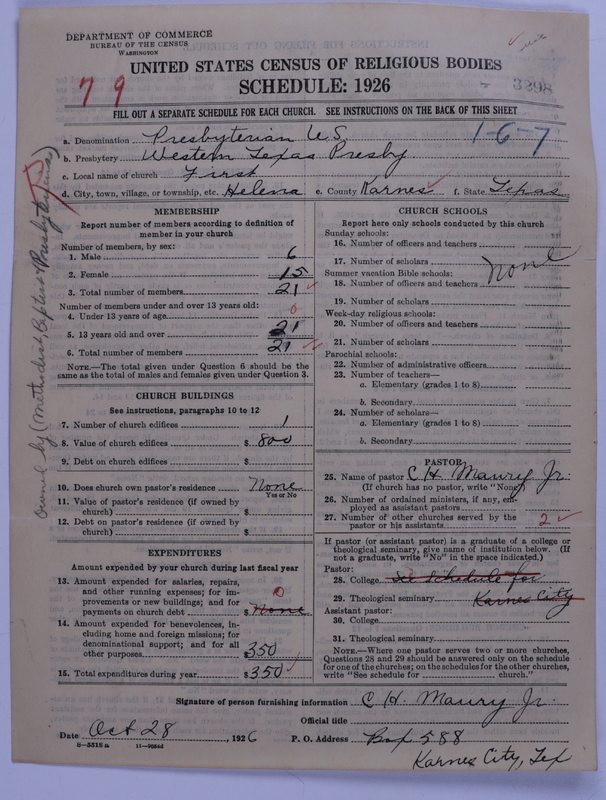 DEPARTMENT OF COMMERCE
BUREAU OF THE CENSUS
WASHINGTON
UNITED STATES CENSUS OF RELIGIOUS BODIES
SCHEDULE: 1926
7 9
3298
FILL OUT A SEPARATE SCHEDULE FOR EACH CHURCH. SEE INSTRUCTIONS ON THE BACK OF THIS SHEET
1-6-7
a. Denomination Presbyterian U.S.
b. Presbytery Western Texas Presby
c. Local name of church First
d. City, town, village, or township, etc. Helena e. County Karnes f. State Texas
owned by (Methodist, Baptist & Presbyterians)
MEMBERSHIP
Report number of members according to definition of
member in your church
Number of members, by sex:
1. Male 6
2. Female 15
3. Total number of members 21
Number of members under and over 13 years old:
4. Under 13 years of age 0
5. 13 years old and over 21
6. Total number of members 21
NOTE.—The total given under Question 6 should be the
same as the total of males and females given under Question 3.
CHURCH BUILDINGS
See instructions, paragraphs 10 to 12
7. Number of church edifices 1
8. Value of church edifices $ 800
9. Debt on church edifices $
10. Does church own pastor's residence? None
Yes or No
11. Value of pastor's residence (if owned by
church) $
12. Debt on pastor's residence (if owned by
church) $
EXPENDITURES
Amount expended by your church during last fiscal year
13. Amount expended for salaries, repairs,
and other running expenses; for im-
provements or new buildings; and for
payments on church debt $ None 0
14. Amount expended for benevolences, in-
cluding home and foreign missions; for
denominational support; and for all
other purposes $ 350
15. Total expenditures during year $ 350
CHURCH SCHOOLS
Report here only schools conducted by this church
Sunday schools:
16. Number of officers and teachers
17. Number of scholars None
Summer vacation Bible schools:
18. Number of officers and teachers
19. Number of scholars
Week-day religious schools:
20. Number of officers and teachers
21. Number of scholars
Parochial schools:
22. Number of administrative officers
23. Number of teachers—
a. Elementary (grades 1 to 8)
b. Secondary
24. Number of scholars—
a. Elementary (grades 1 to 8)
b. Secondary
PASTOR
25. Name of pastor C H. Maury Jr.
(If church has no pastor, write "None")
26. Number of ordained ministers, if any, em-
ployed as assistant pastors
27. Number of other churches served by the
pastor or his assistants 2
If pastor (or assistant pastor) is a graduate of a college or
theological seminary, give name of institution below. (If
not a graduate, write "No" in the space indicated.)
Pastor:
28. College Se Schedule for
29. Theological seminary Karnes City
Assistant pastor:
30. College
31. Theological seminary
NOTE.—Where one pastor serves two or more churches,
Questions 28 and 29 should be answered only on the schedule
for one of the churches; on the schedules for the other churches,
write "See schedule for church."
Signature of person furnishing information C H. Maury Jr.
Official title
Date Oct 28, 1926 P. O. Address Box 588
8-5518a 11-9054d
Karnes City, Tex